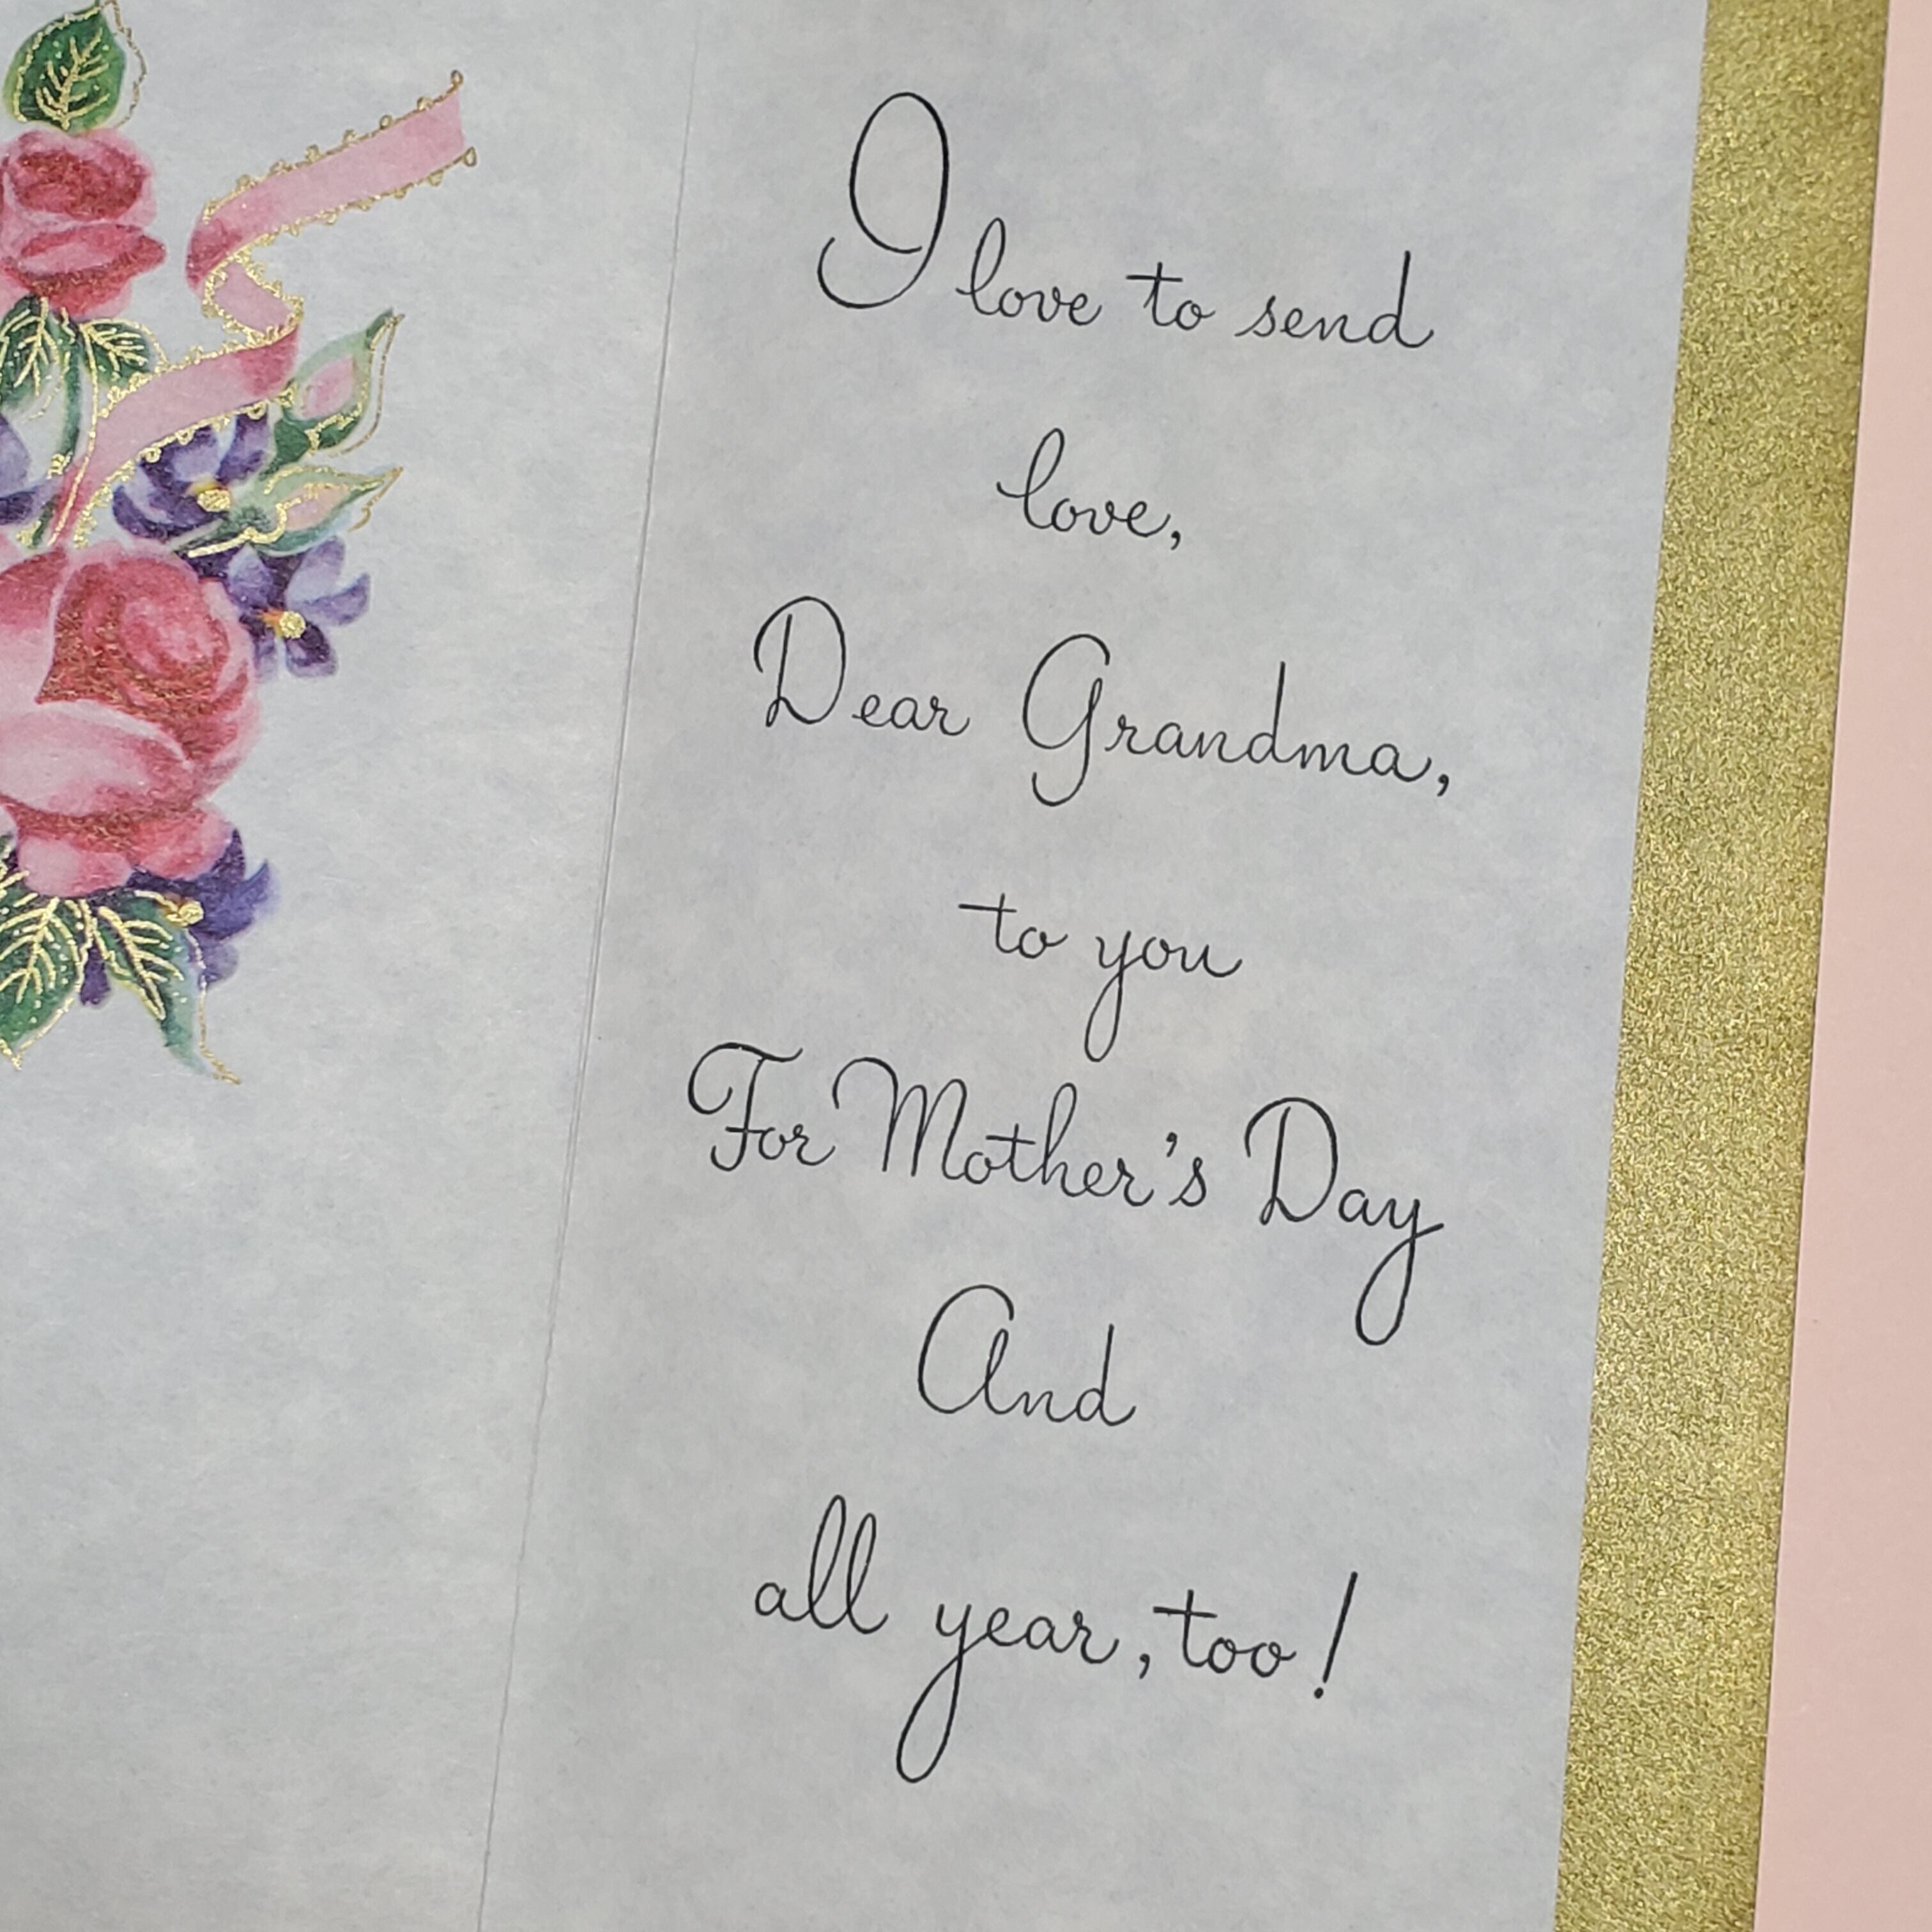 I love to send
love,
Dear Grandma,
to you
For Mother's Day
And
all year, too!